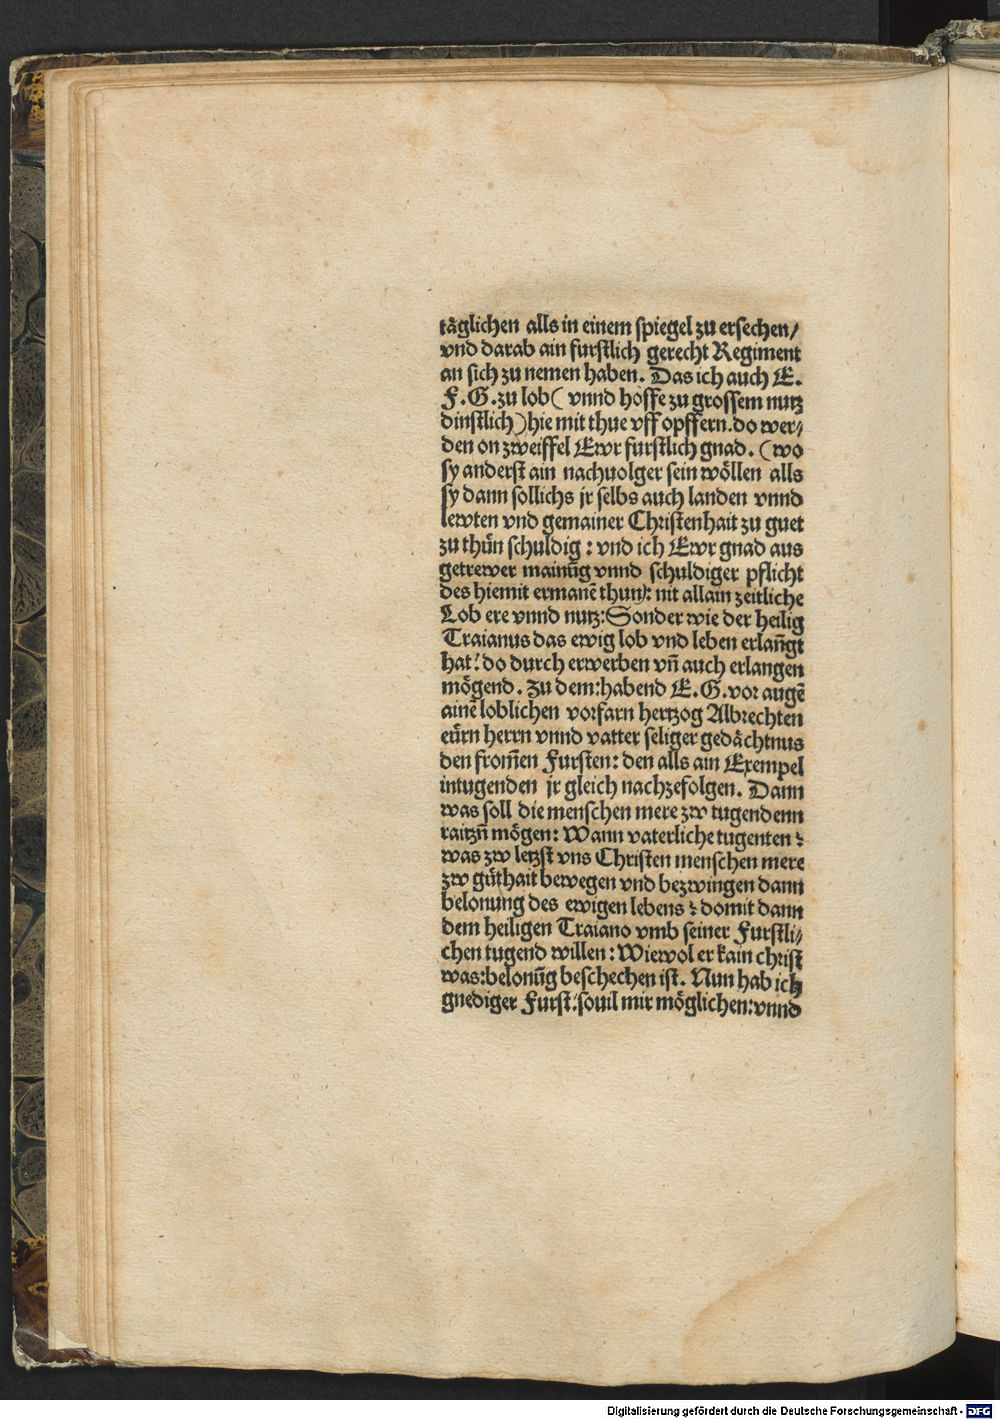 täglichen alls in einem spiegel zu ersechen/
vnd darab ain furstlich gerecht Regiment
an sich zu nemen haben. Das ich auch E.
F. G. zu lob ( vnnd hoffe zu grossem nutz
dinstlich) hie mit thue vff opffern. do wer/
den on zweiffel Ewr furstlich gnad. (wo
sy anderst ain nachuolger sein wöllen alls
sy dann sollichs jr selbs auch landen vnnd
lewten vnd gemainer Christenhait zu guet
zu thůn schuldig : vnd ich Ewr gnad aus
getrewer mainūg vnnd schuldiger pflicht
des hiemit ermanē thun): nit allain zeitliche
Lob ere vnnd nutz: Sonder wie der heilig
Traianus das ewig lob vnd leben erlañgt
hat: do durch erwerben vñ auch erlangen
mögend. Zu dem: habend E. G. vor augē
ainē loblichen vorfarn hertzog Albrechten
eürn herrn vnnd vatter seliger gedächtnus
den from̄en Fursten: den alls ain Exempel
intugenden jr gleich nachzefolgen. Dann
was soll die menschen mere zw tugendenn
raitzñ mögen: Wann vaterliche tugenten ꝛ
was zw letzst vns Christen menschen mere
zw gůthait bewegen vnd bezwingen dann
belonung des ewigen lebens ꝛ domit dann
dem heiligen Traiano vmb seiner Furstli/
chen tugend willen: Wiewol er kain christ
was: belonūg beschechen ist. Nun hab ich
gnediger Furst: souil mir möglichen: vnnd
Digitalisierung gefördert durch die Deutsche Forschungsgemeinschaft - DFG